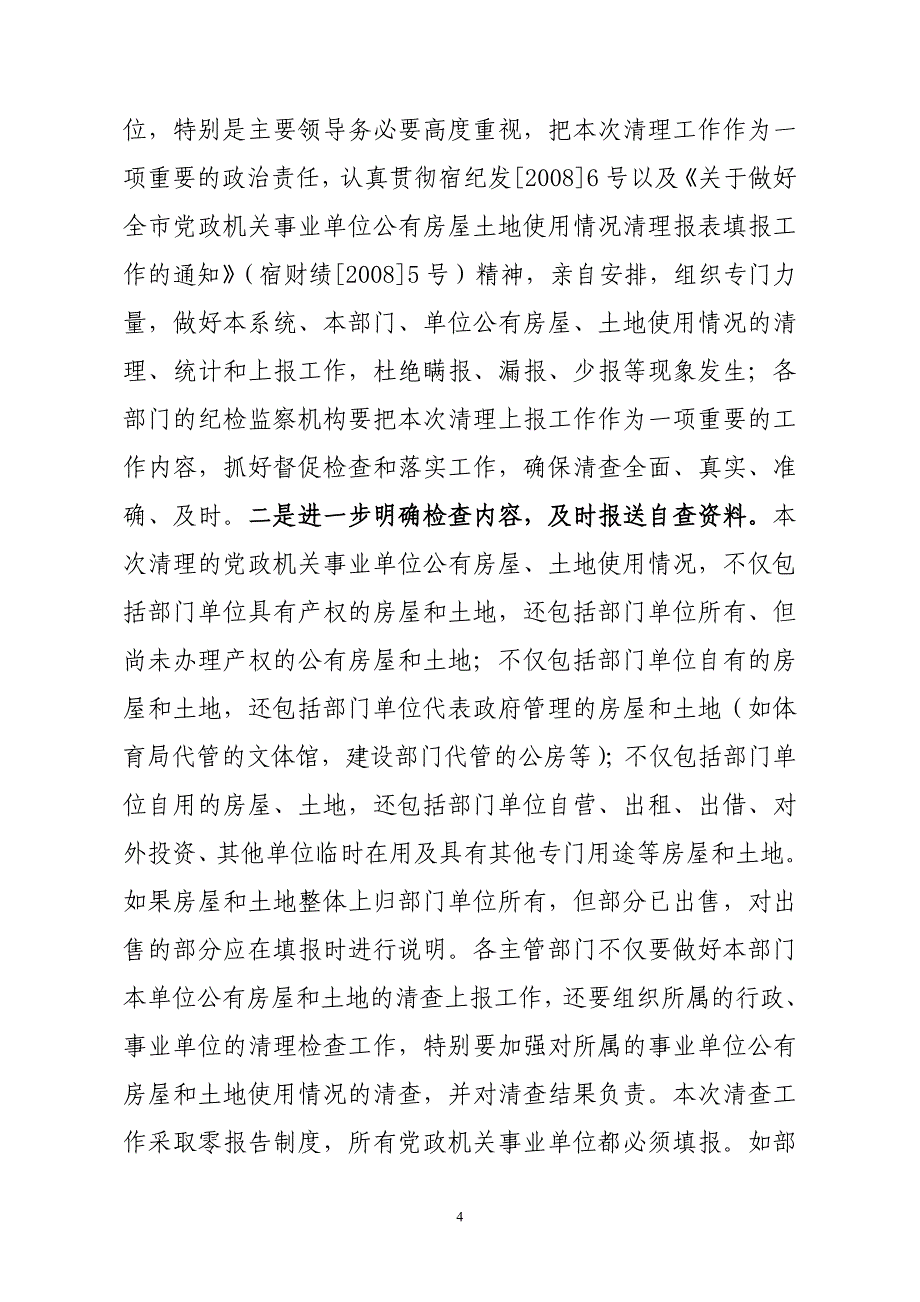 位，特别是主要领导务必要高度重视，把本次清理工作作为一
项重要的政治责任，认真贯彻宿纪发[2008]6 号以及《关于做好
全市党政机关事业单位公有房屋土地使用情况清理报表填报工
作的通知》（宿财绩[2008]5 号）精神，亲自安排，组织专门力
量，做好本系统、本部门、单位公有房屋、土地使用情况的清
理、统计和上报工作，杜绝瞒报、漏报、少报等现象发生；各
部门的纪检监察机构要把本次清理上报工作作为一项重要的工
作内容，抓好督促检查和落实工作，确保清查全面、真实、准
确、及时。二是进一步明确检查内容，及时报送自查资料。本
次清理的党政机关事业单位公有房屋、土地使用情况，不仅包
括部门单位具有产权的房屋和土地，还包括部门单位所有、但
尚未办理产权的公有房屋和土地；不仅包括部门单位自有的房
屋和土地，还包括部门单位代表政府管理的房屋和土地（如体
育局代管的文体馆，建设部门代管的公房等）；不仅包括部门单
位自用的房屋、土地，还包括部门单位自营、出租、出借、对
外投资、其他单位临时在用及具有其他专门用途等房屋和土地。
如果房屋和土地整体上归部门单位所有，但部分已出售，对出
售的部分应在填报时进行说明。各主管部门不仅要做好本部门
本单位公有房屋和土地的清查上报工作，还要组织所属的行政、
事业单位的清理检查工作，特别要加强对所属的事业单位公有
房屋和土地使用情况的清查，并对清查结果负责。本次清查工
作采取零报告制度，所有党政机关事业单位都必须填报。如部
4